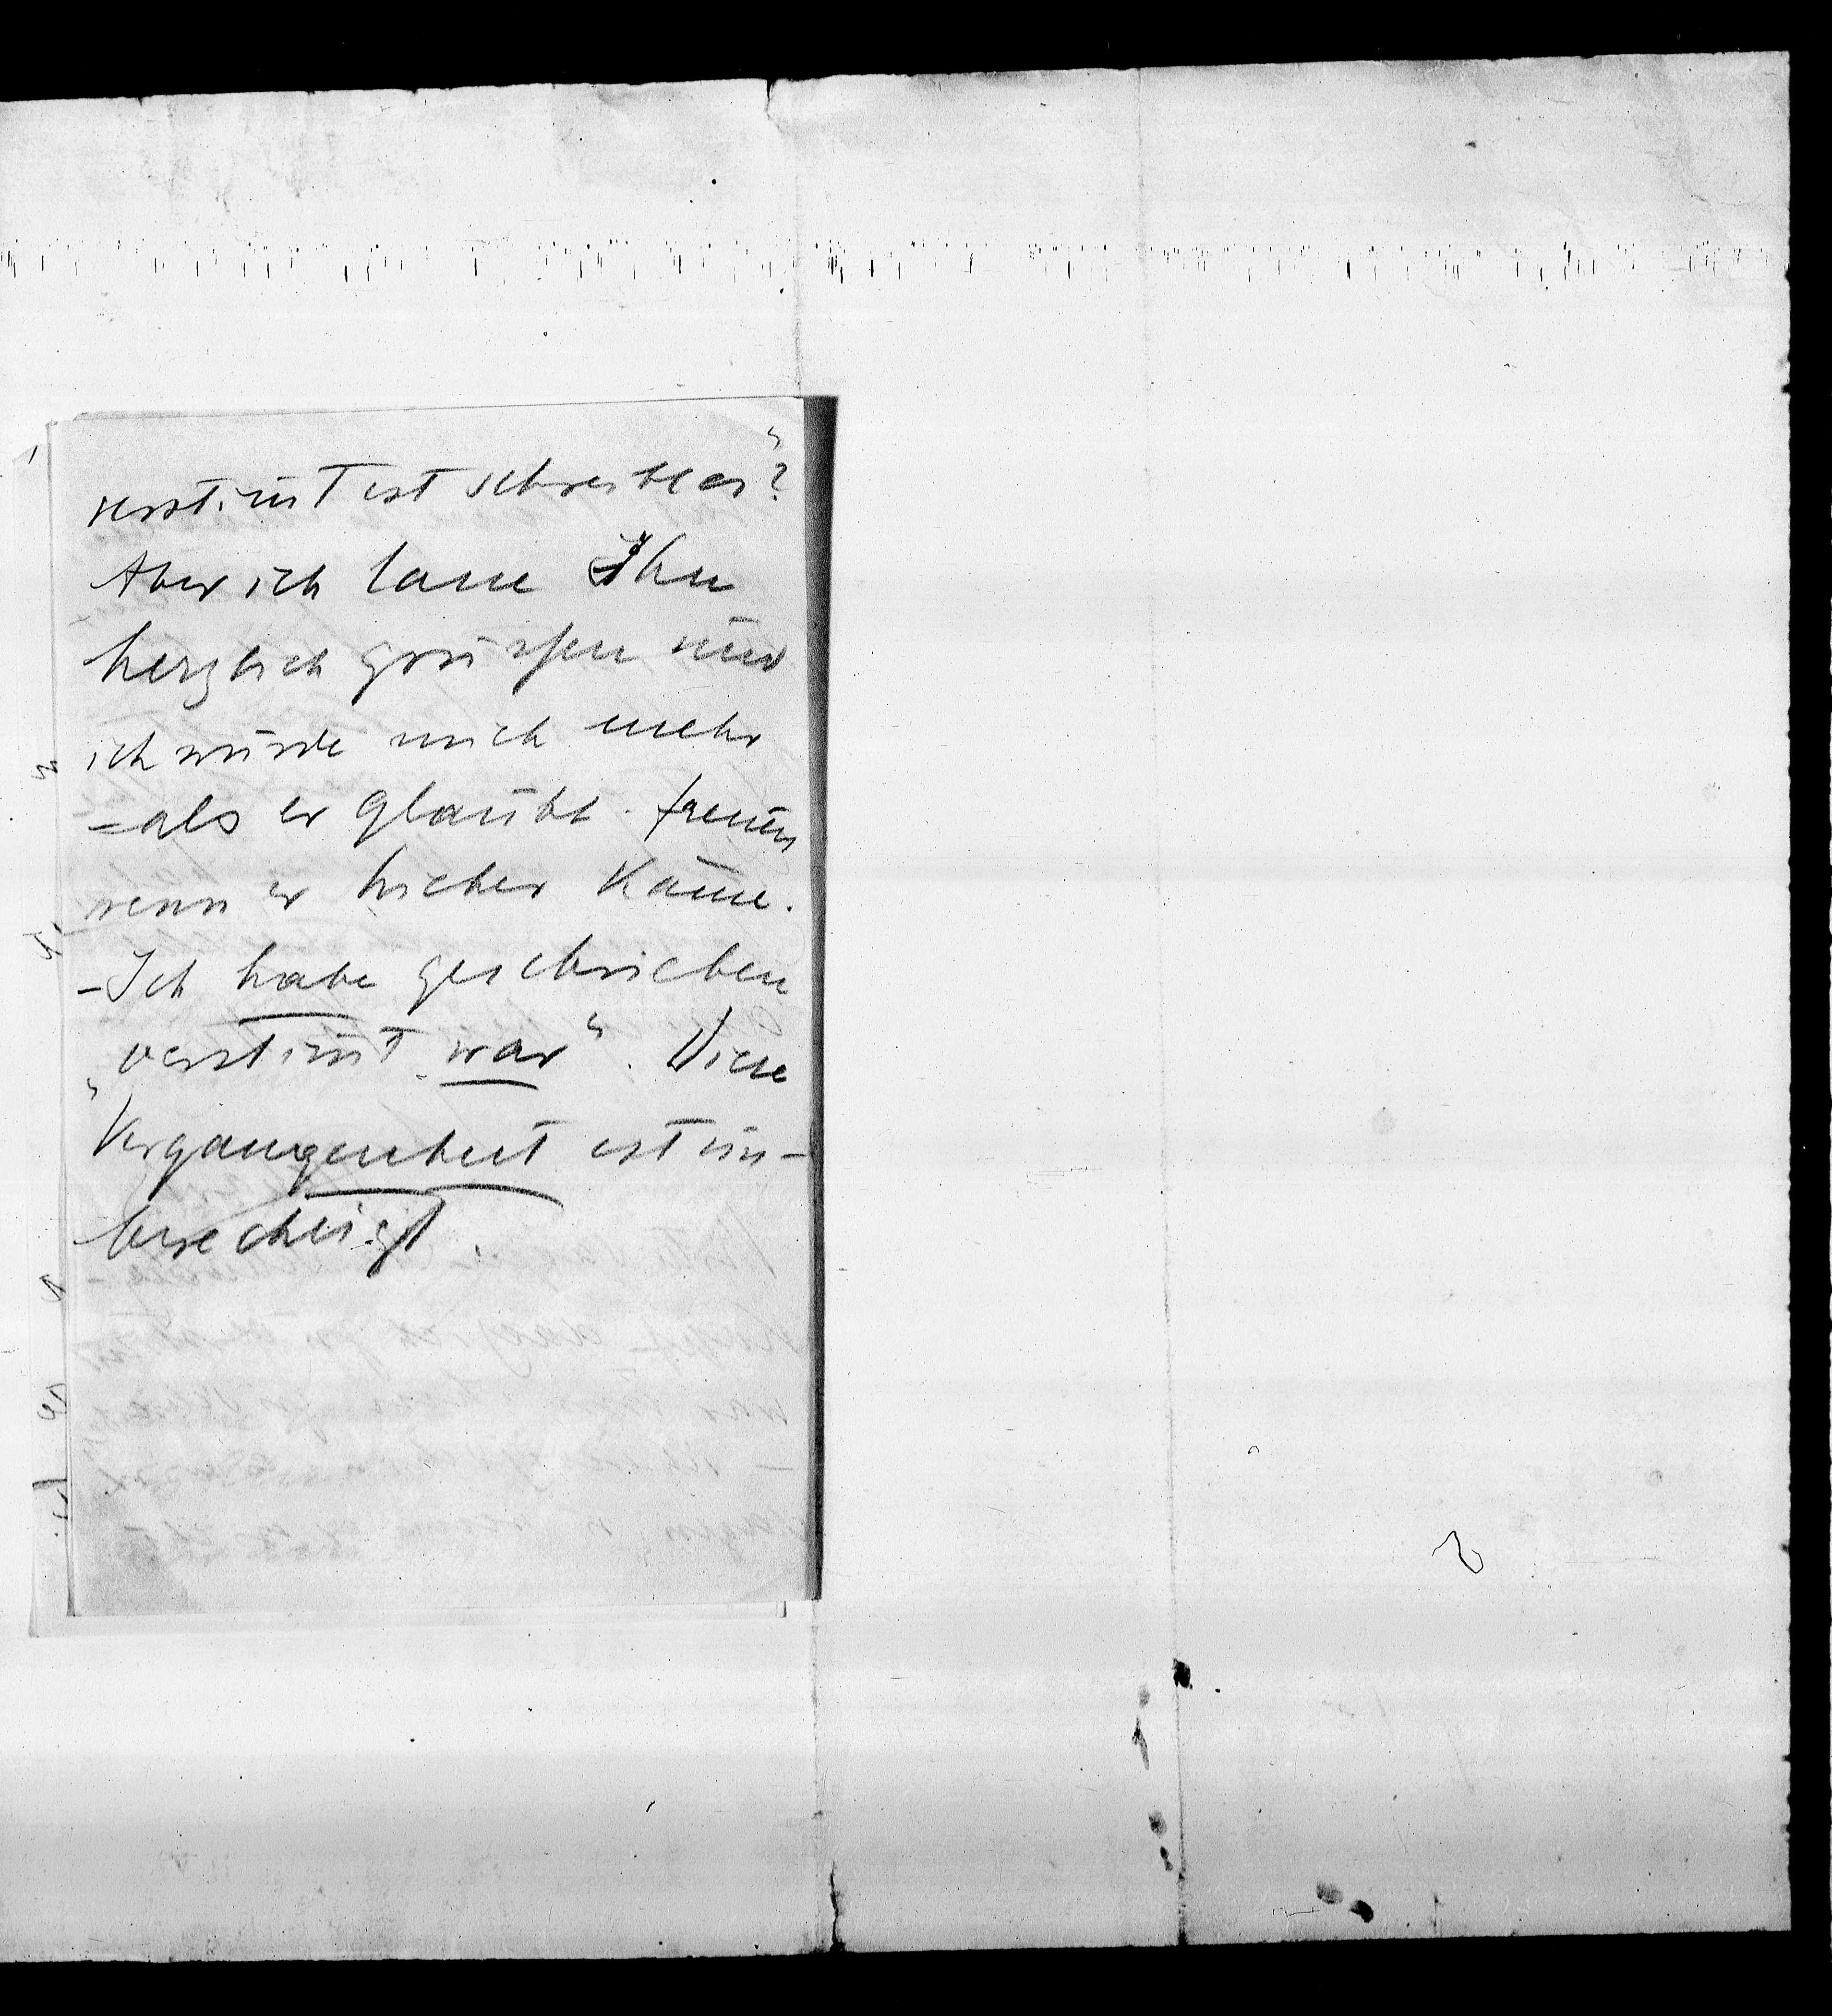 verstim̄t ist schreiben"?
Aber ich lasse Ihn
herzlich grüssen und
ich würde mich mehr
– als er glaubt – freuen
wenn er hieher käme.
– Ich habe geschrieben
„verstim̄t war". Diese
Vergangenheit ist un-
berechtigt.